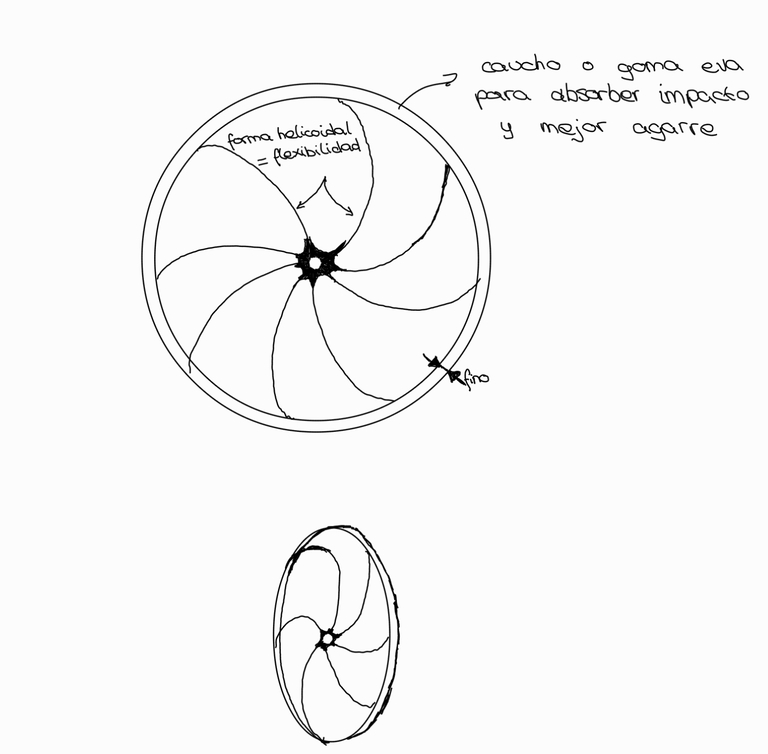 caucho o goma eva
para absorber impacto
y mejor agarre
forma helicoidal
= flexibilidad
fino